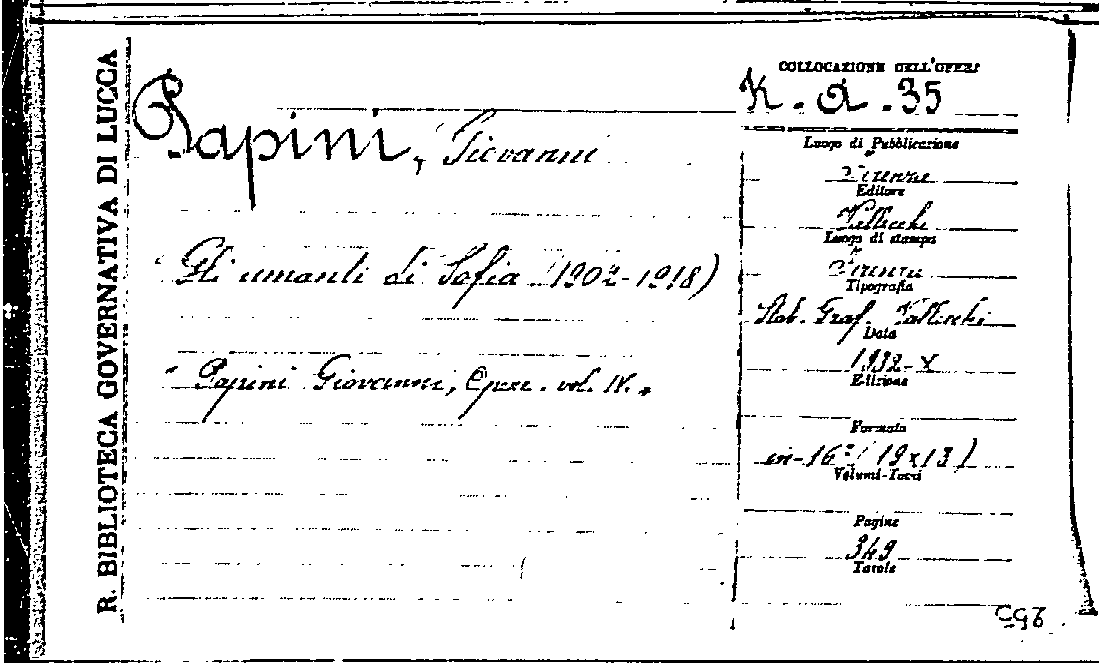 R. BIBLIOTECA GOVERNATIVA DI LUCCA
Papini, Giovanni
Gli amanti di Sofia (1902-1918)
" Papini Giovanni, Opere. vol. IV. "
COLLOCAZIONE DELL'OPERA
K. a. 35
Luogo di Pubblicazione
Firenze
Editore
Vallecchi
Luogo di stampa
Firenze
Tipografia
Stab. Graf. Vallecchi
Data
1932-X
Edizione
Formato
in-16° (19x13)
Volumi-Tomi
Pagine
349
Tavole